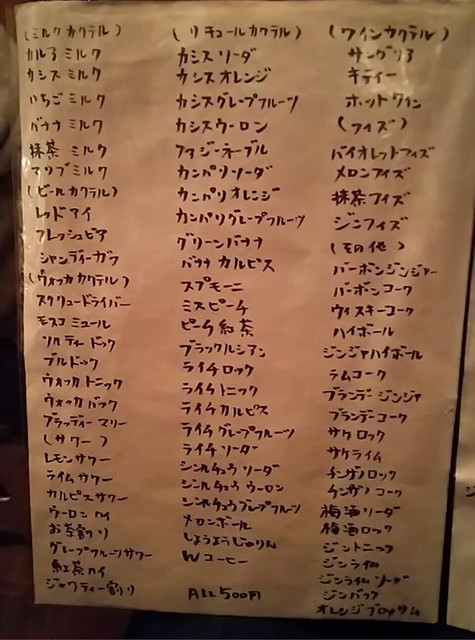 (ミルクカクテル)
カルアミルク
カシスミルク
いちごミルク
バナナミルク
抹茶ミルク
マリブミルク
(ビールカクテル)
レッドアイ
フレッシュビア
シャンディーガフ
(ウォッカカクテル)
スクリュードライバー
モスコミュール
ソルティードック
ブルドック
ウォッカトニック
ウォッカバック
ブラッディーマリー
(サワー)
レモンサワー
ライムサワー
カルピスサワー
ウーロンハイ
お茶割り
グレープフルーツサワー
紅茶ハイ
ジャワティー割り
(リキュールカクテル)
カシスソーダ
カシスオレンジ
カシスグレープフルーツ
カシスウーロン
ファジーネーブル
カンパリソーダ
カンパリオレンジ
カンパリグレープフルーツ
グリーンバナナ
バナナカルピス
スプモーニ
ミスピーチ
ピーチ紅茶
ブラックルシアン
ライチロック
ライチトニック
ライチカルピス
ライチグレープフルーツ
ライチソーダ
シンルチュウソーダ
シンルチュウウーロン
シンルチュウグレープフルーツ
メロンボール
しょうようじゅりん
Wコーヒー
ALL500円
(ワインカクテル)
サングリア
キティー
ホットワイン
(フィズ)
バイオレットフィズ
メロンフィズ
抹茶フィズ
ジンフィズ
(その他)
バーボンジンジャー
バーボンコーク
ウィスキーコーク
ハイボール
ジンジャハイボール
ラムコーク
ブランデージンジャ
ブランデーコーク
サケロック
サケライム
チンザノロック
チンザノコーク
梅酒ソーダ
梅酒ロック
ジントニック
ジンライム
ジンライムソーダ
ジンバック
オレンジブロッサム